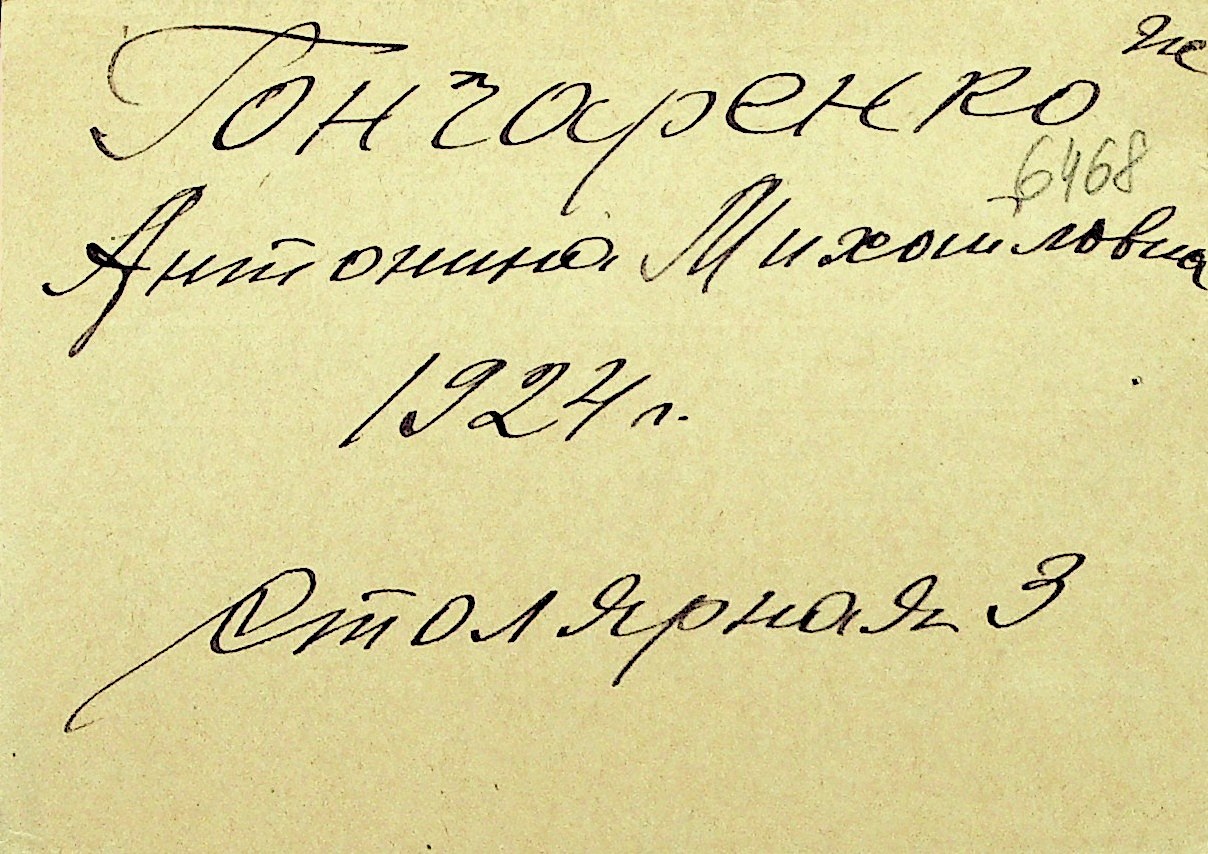 Гончаренко
6468
Антонина Михайловна
1924 г.
Столярная 3